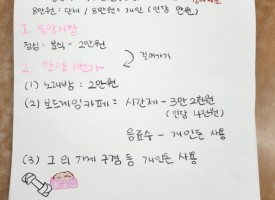 8만원 : 단체 / 8만원 : 개인 (인당 만원)
1. 중앙시장
점심 : 분식 - 2만원
걸어가기
2. 안양 1번가
(1) 노래방 : 2만원
(2) 보드게임카페 : 시간제 - 3만 2천원
(인당 4천원)
음료수 - 개인돈 사용
(3) 그 외 가게 구경 등 개인돈 사용